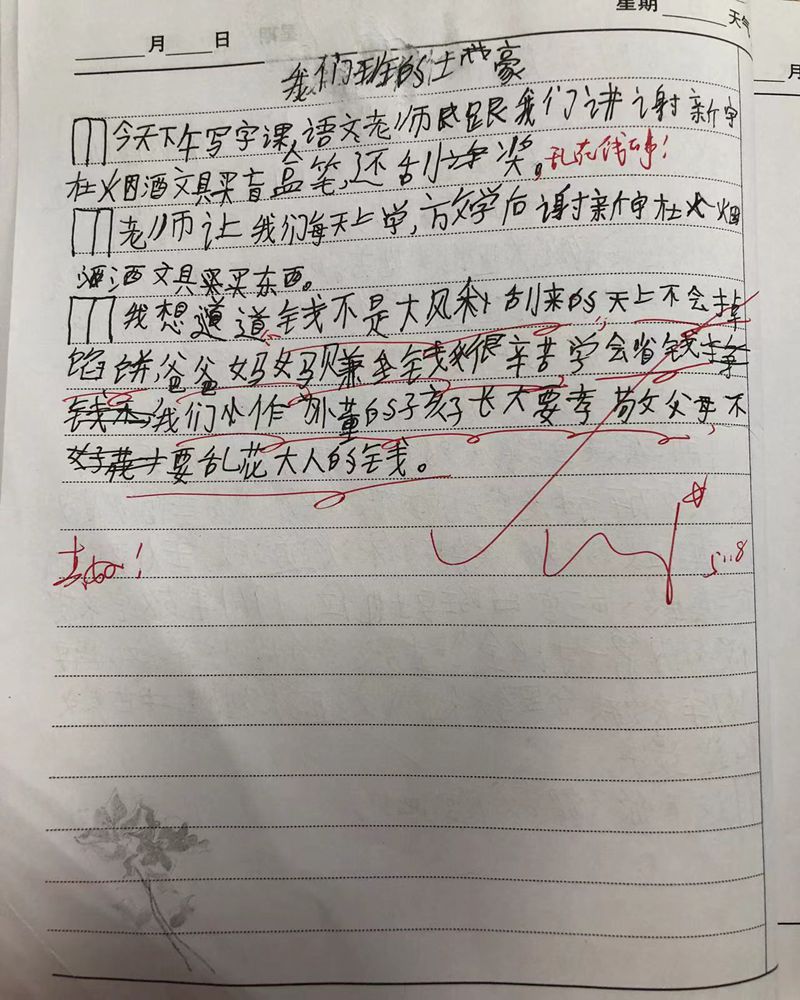 星期 天气
月 日
月
我们班的土豪
今天下午写字课,语文老师跟我们讲谢新宇
在烟酒文具买盲盒笔,还刮奖。乱花钱
老师让我们每天上学,放学后谢新宇在烟
酒文具买东西。
我想道钱不是大风刮来的天上不会掉
馅饼,爸爸妈妈赚金钱很辛苦学会省钱
我们小作的子孩子长大要孝敬父母不
要乱花大人的钱。
5.8